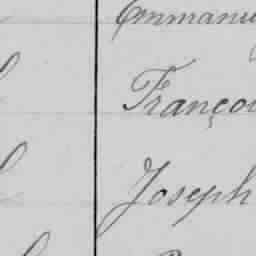 Emmanu
Françoi
Joseph